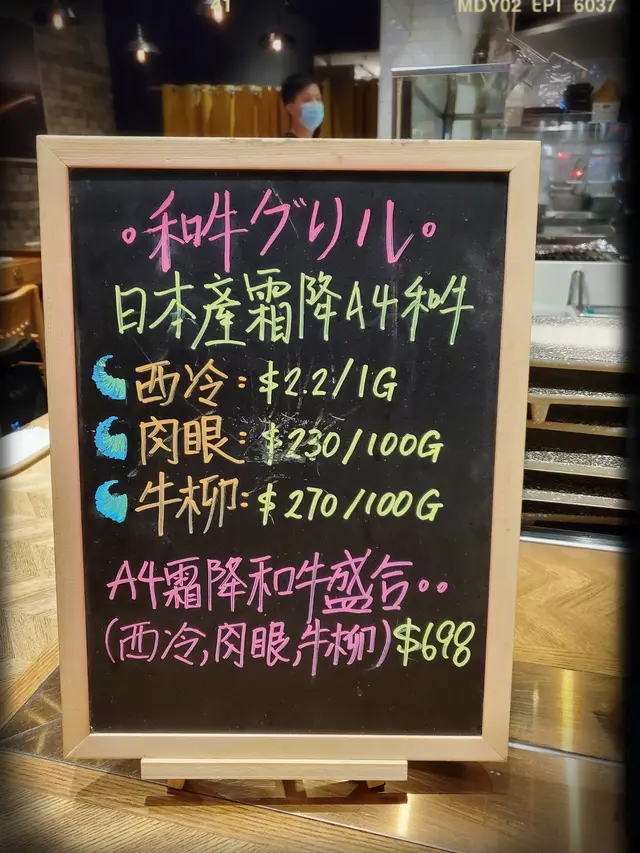 41
MDY02 EPI 6037
•和牛グリル•
日本產霜降A4和牛
西冷:$2.2/1G
肉眼:$230/100G
牛柳:$270/100G
A4霜降和牛盛合••
(西冷,肉眼,牛柳)$698